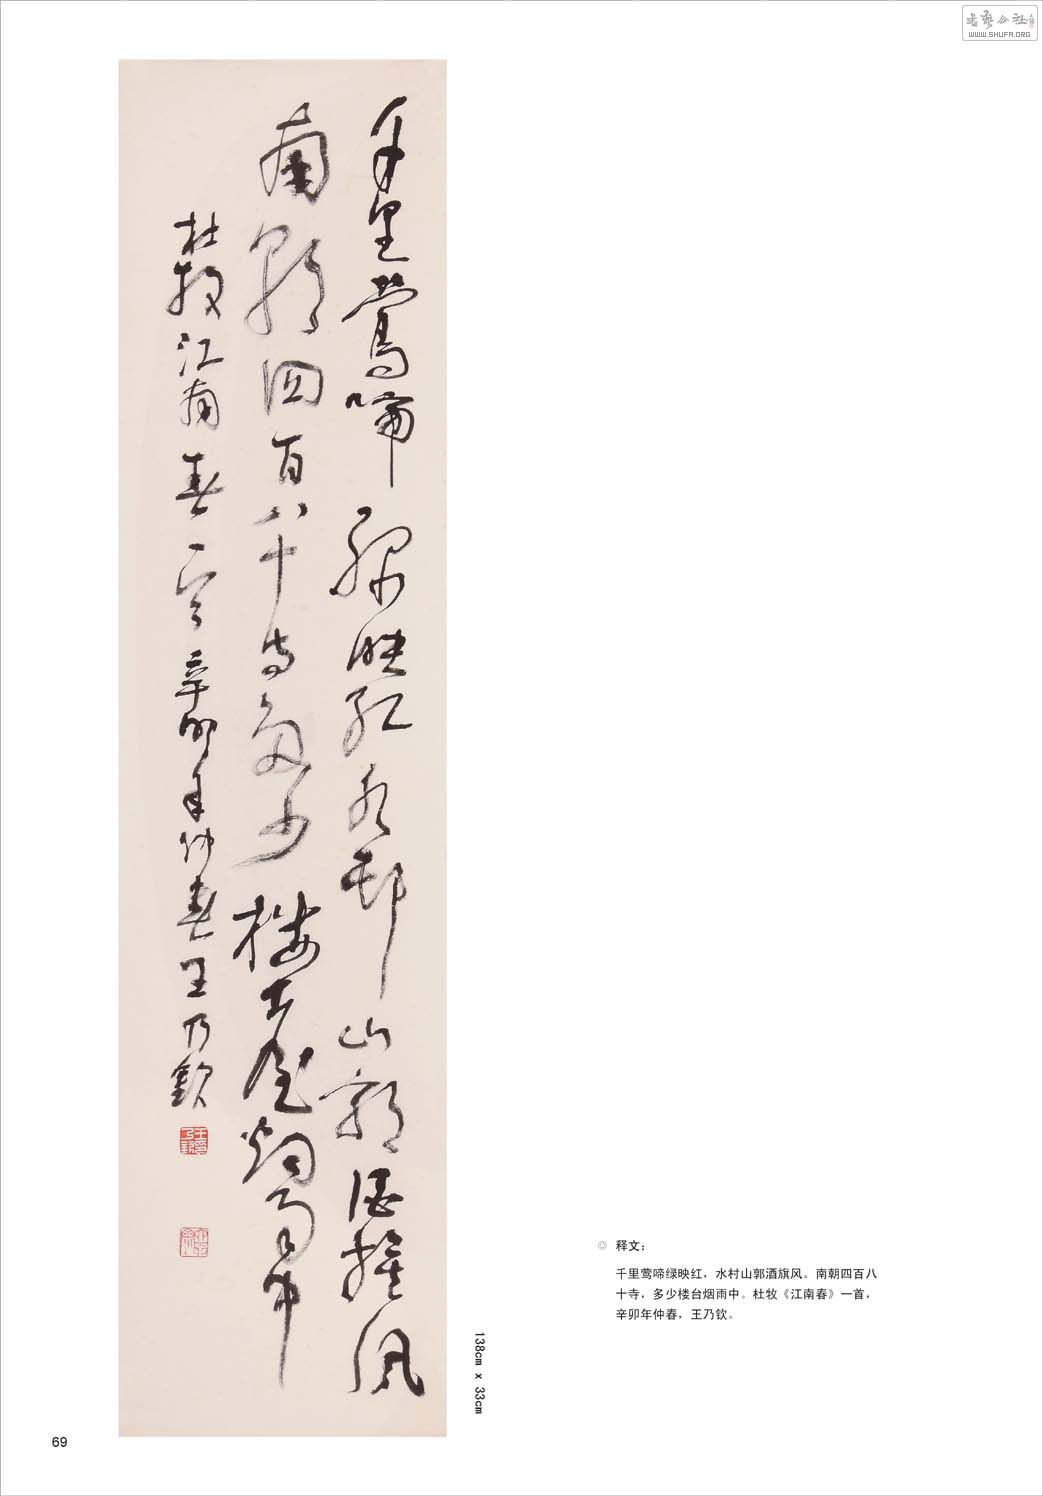 千里莺啼绿映红水邨山郭酒旗风
南朝四百八十寺多少楼台烟雨中
杜牧江南春一首辛卯年仲春王乃钦
138cm x 33cm
释文：
千里莺啼绿映红，水村山郭酒旗风。南朝四百八
十寺，多少楼台烟雨中。杜牧《江南春》一首，
辛卯年仲春，王乃钦。
69
WWW.SHUFA.ORG